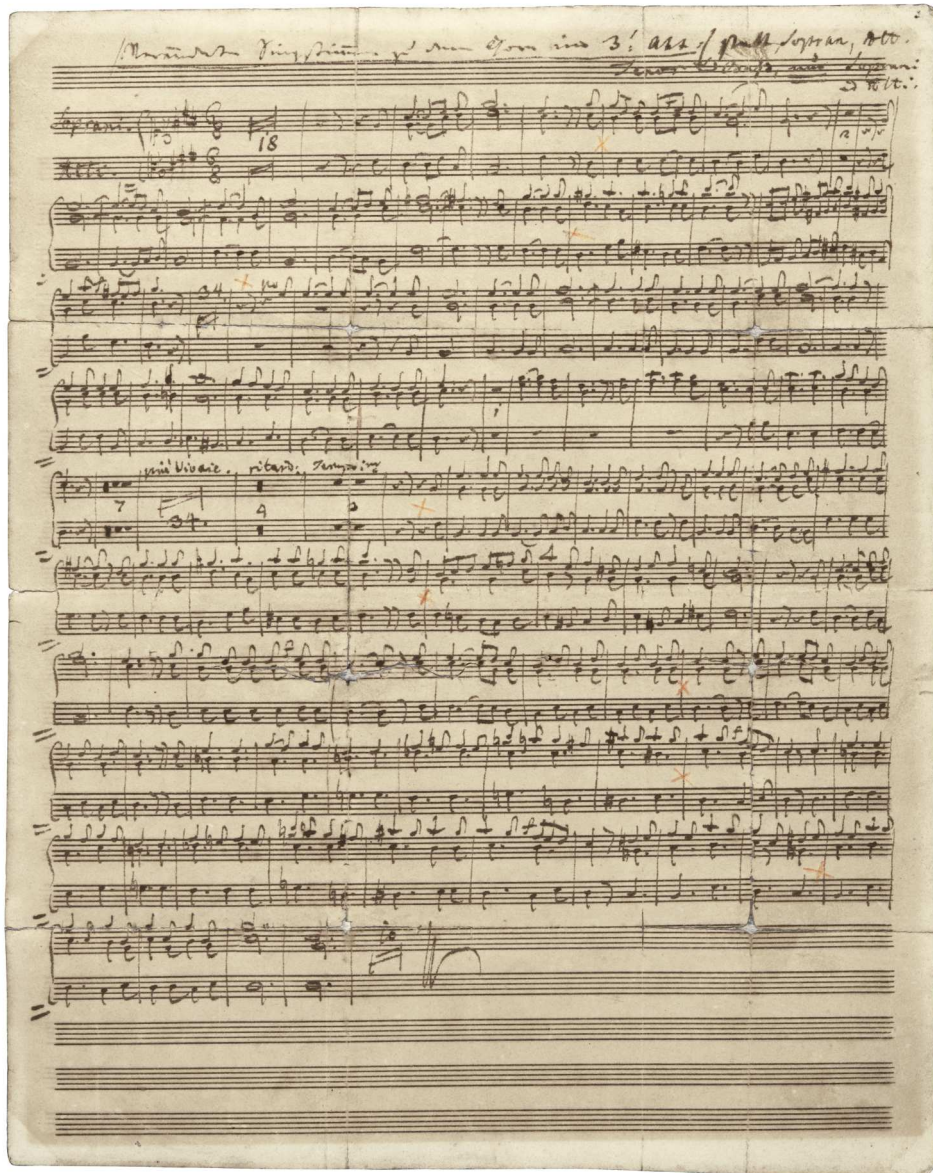 Veränderte Singstimmen zu dem Chor im 3t Akt statt Sopran, Alt.
Tenor & Bass, nur Soprani
ed Alti:
Soprani.
18
2
Alti.
34.
1
più vivace. ritard: Tempo imo
7
4
3
34.
4